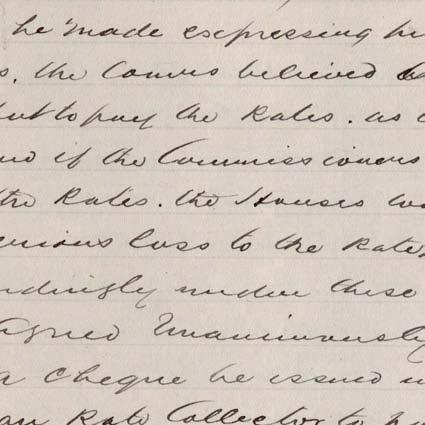 he made expressing
the Comrs believed
to pay the Rates. as
if the Commissioners
the Rates. the Houses
serious loss to the Rate
under these
Agreed Unanimously
a cheque be issued
Rate Collector to